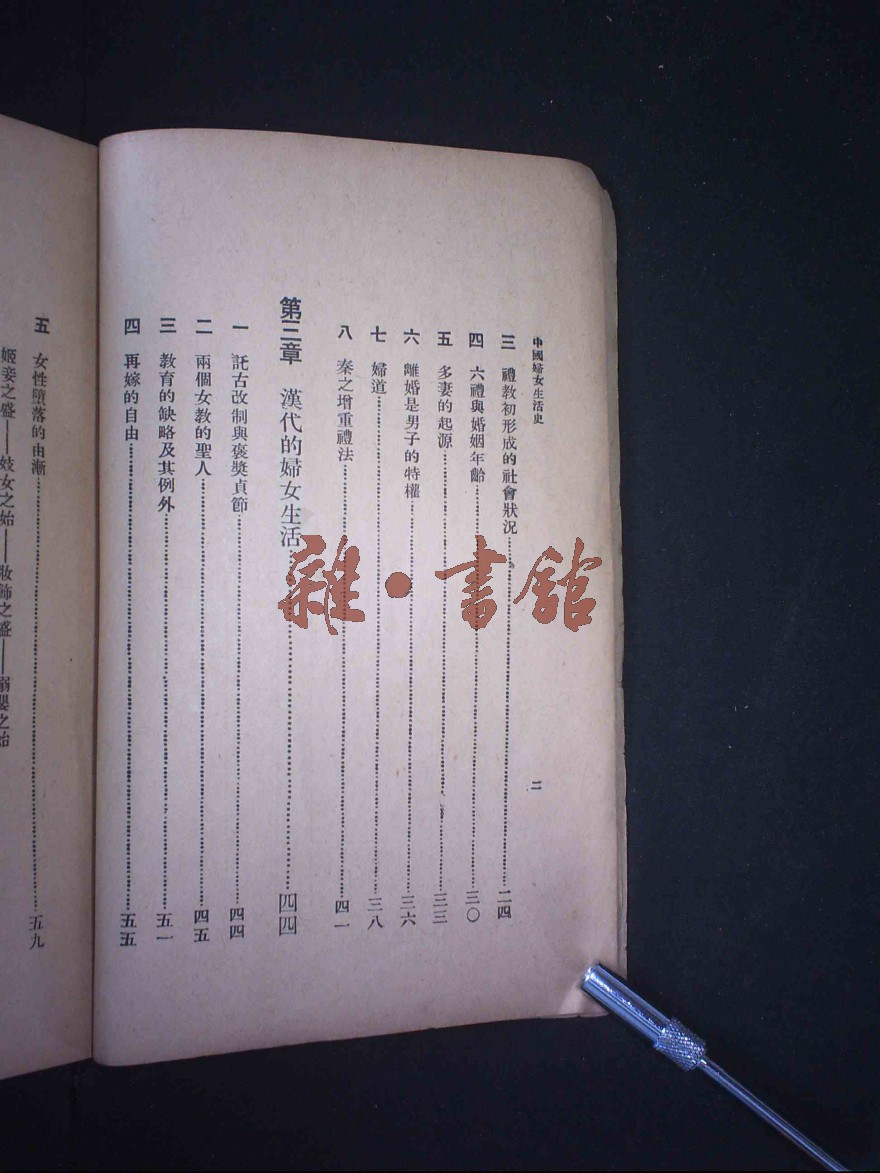 中國婦女生活史
二
三 禮教初形成的社會狀況……二四
四 六禮與婚姻年齡……三〇
五 多妻的起源……三三
六 離婚是男子的特權……三六
七 婦道……三八
八 秦之增重禮法……四一
第三章 漢代的婦女生活……四四
一 託古改制與褒獎貞節……四四
二 兩個女教的聖人……四五
三 教育的缺略及其例外……五一
四 再嫁的自由……五五
五 女性墮落的由漸……五九
姬妾之盛——妓女之始——妝飾之盛——溺嬰之始
雜·書館